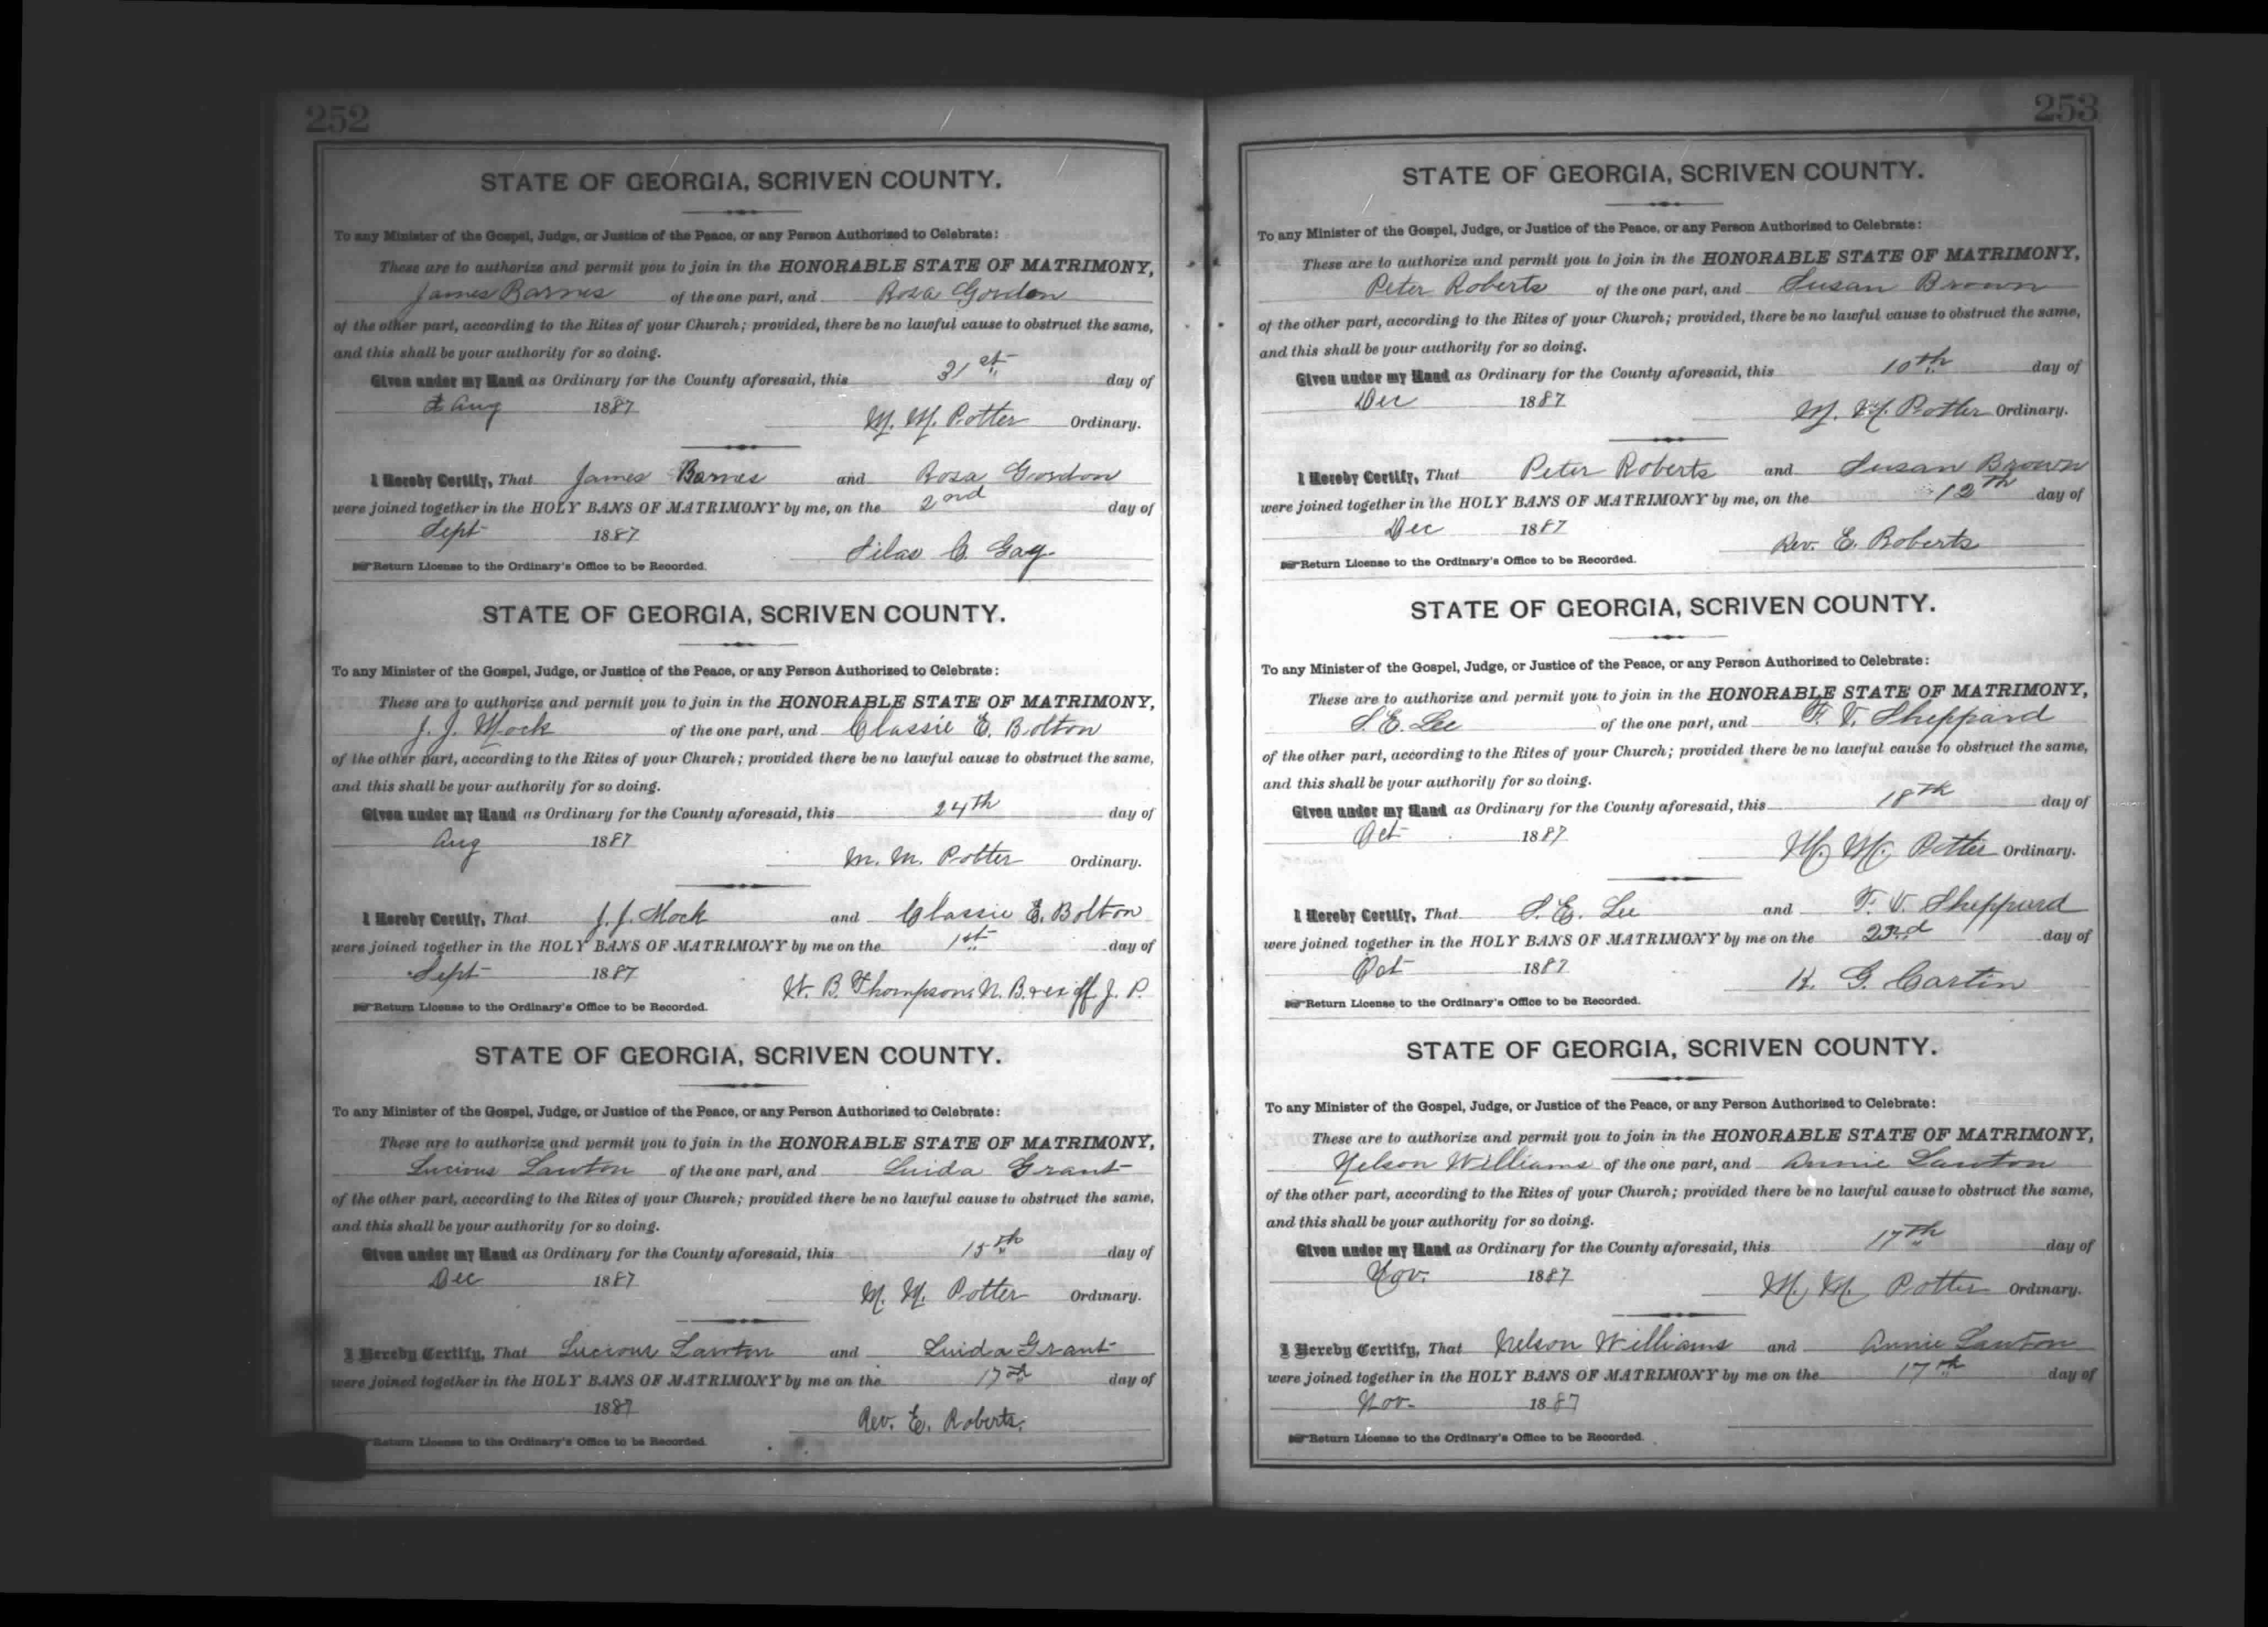 252
STATE OF GEORGIA, SCRIVEN COUNTY.
To any Minister of the Gospel, Judge, or Justice of the Peace, or any Person Authorized to Celebrate:
These are to authorize and permit you to join in the HONORABLE STATE OF MATRIMONY,
James Barnes of the one part, and Rosa Gordon
of the other part, according to the Rites of your Church; provided, there be no lawful cause to obstruct the same,
and this shall be your authority for so doing.
Given under my Hand as Ordinary for the County aforesaid, this 31st day of
Aug 1887
M. M. Potter Ordinary.
I Hereby Certify, That James Barnes and Rosa Gordon
were joined together in the HOLY BANS OF MATRIMONY by me, on the 2nd day of
Sept 1887
Silas C. Gay
Return License to the Ordinary's Office to be Recorded.
STATE OF GEORGIA, SCRIVEN COUNTY.
To any Minister of the Gospel, Judge, or Justice of the Peace, or any Person Authorized to Celebrate:
These are to authorize and permit you to join in the HONORABLE STATE OF MATRIMONY,
J. J. Mock of the one part, and Classie E. Bolton
of the other part, according to the Rites of your Church; provided there be no lawful cause to obstruct the same,
and this shall be your authority for so doing.
Given under my Hand as Ordinary for the County aforesaid, this 24th day of
Aug 1887
M. M. Potter Ordinary.
I Hereby Certify, That J. J. Mock and Classie E. Bolton
were joined together in the HOLY BANS OF MATRIMONY by me on the 1st day of
Sept 1887
W. B. Thompson, N. B. & ex off J. P.
Return License to the Ordinary's Office to be Recorded.
STATE OF GEORGIA, SCRIVEN COUNTY.
To any Minister of the Gospel, Judge, or Justice of the Peace, or any Person Authorized to Celebrate:
These are to authorize and permit you to join in the HONORABLE STATE OF MATRIMONY,
Lucious Lawton of the one part, and Luida Grant
of the other part, according to the Rites of your Church; provided there be no lawful cause to obstruct the same,
and this shall be your authority for so doing.
Given under my Hand as Ordinary for the County aforesaid, this 15th day of
Dec 1887
M. M. Potter Ordinary.
I Hereby Certify, That Lucious Lawton and Luida Grant
were joined together in the HOLY BANS OF MATRIMONY by me on the 17th day of
1887
Rev. E. Roberts.
Return License to the Ordinary's Office to be Recorded.
253
STATE OF GEORGIA, SCRIVEN COUNTY.
To any Minister of the Gospel, Judge, or Justice of the Peace, or any Person Authorized to Celebrate:
These are to authorize and permit you to join in the HONORABLE STATE OF MATRIMONY,
Peter Roberts of the one part, and Susan Brown
of the other part, according to the Rites of your Church; provided, there be no lawful cause to obstruct the same,
and this shall be your authority for so doing.
Given under my Hand as Ordinary for the County aforesaid, this 10th day of
Dec 1887
M. M. Potter Ordinary.
I Hereby Certify, That Peter Roberts and Susan Brown
were joined together in the HOLY BANS OF MATRIMONY by me, on the 12th day of
Dec 1887
Rev. E. Roberts
Return License to the Ordinary's Office to be Recorded.
STATE OF GEORGIA, SCRIVEN COUNTY.
To any Minister of the Gospel, Judge, or Justice of the Peace, or any Person Authorized to Celebrate:
These are to authorize and permit you to join in the HONORABLE STATE OF MATRIMONY,
S. E. Lee of the one part, and F. V. Sheppard
of the other part, according to the Rites of your Church; provided there be no lawful cause to obstruct the same,
and this shall be your authority for so doing.
Given under my Hand as Ordinary for the County aforesaid, this 18th day of
Oct 1887
M. M. Potter Ordinary.
I Hereby Certify, That S. E. Lee and F. V. Sheppard
were joined together in the HOLY BANS OF MATRIMONY by me on the 23rd day of
Oct 1887
K. G. Cartin
Return License to the Ordinary's Office to be Recorded.
STATE OF GEORGIA, SCRIVEN COUNTY.
To any Minister of the Gospel, Judge, or Justice of the Peace, or any Person Authorized to Celebrate:
These are to authorize and permit you to join in the HONORABLE STATE OF MATRIMONY,
Nelson Williams of the one part, and Annie Lawton
of the other part, according to the Rites of your Church; provided there be no lawful cause to obstruct the same,
and this shall be your authority for so doing.
Given under my Hand as Ordinary for the County aforesaid, this 17th day of
Nov. 1887
M. M. Potter Ordinary.
I Hereby Certify, That Nelson Williams and Annie Lawton
were joined together in the HOLY BANS OF MATRIMONY by me on the 17th day of
Nov. 1887
Return License to the Ordinary's Office to be Recorded.